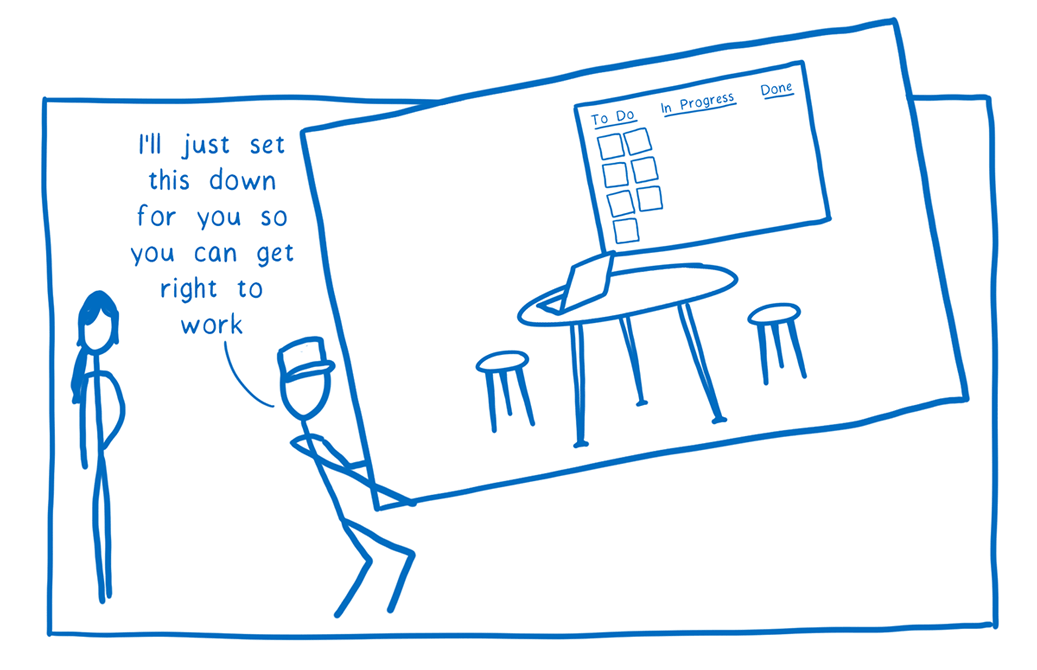 I'll just set
this down
for you so
you can get
right to
work
To Do
In Progress
Done